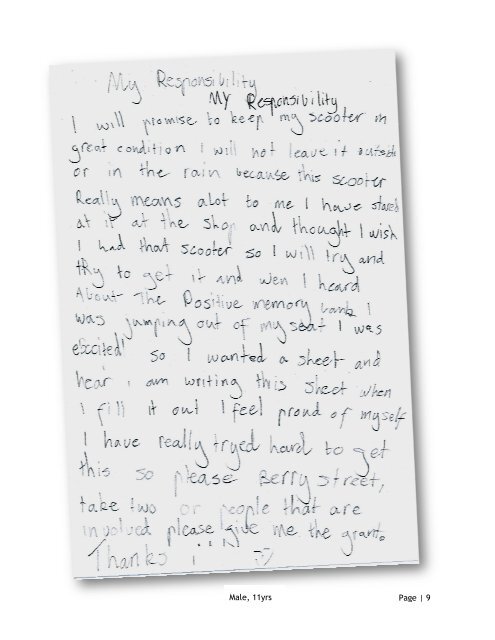 My Responsibility
My Responsibility
I will promise to keep my scooter in
great condition I will not leave it outside
or in the rain because this scooter
Really means alot to me I have stared
at it at the shop and thought I wish
I had that scooter so I will try and
tRy to get it and wen I heard
About The Positive memory bank I
was jumping out of my seat I was
excited! so I wanted a sheet and
hear i am writing this sheet when
i fill it out I feel proud of myself
I have really tryed hard to get
this so please Berry street,
take two or people that are
involved please give me the grant.
Thanks
Male, 11yrs
Page | 9